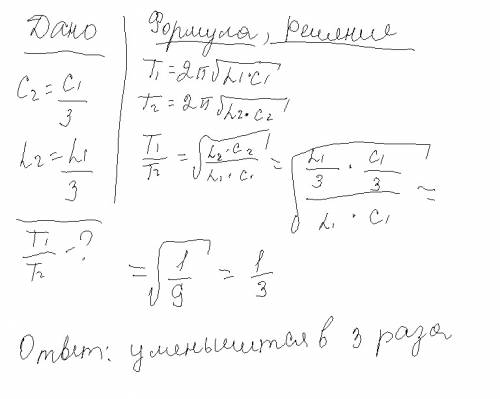 Дано
C₂ = C₁/3
L₂ = L₁/3
T₁/T₂ - ?
Формула, решение
T₁ = 2π√(L₁·C₁)
T₂ = 2π√(L₂·C₂)
T₁/T₂ = √((L₂·C₂)/(L₁·C₁)) = √((L₁/3 · C₁/3)/(L₁·C₁)) =
= √(1/9) = 1/3
Ответ: уменьшится в 3 раза